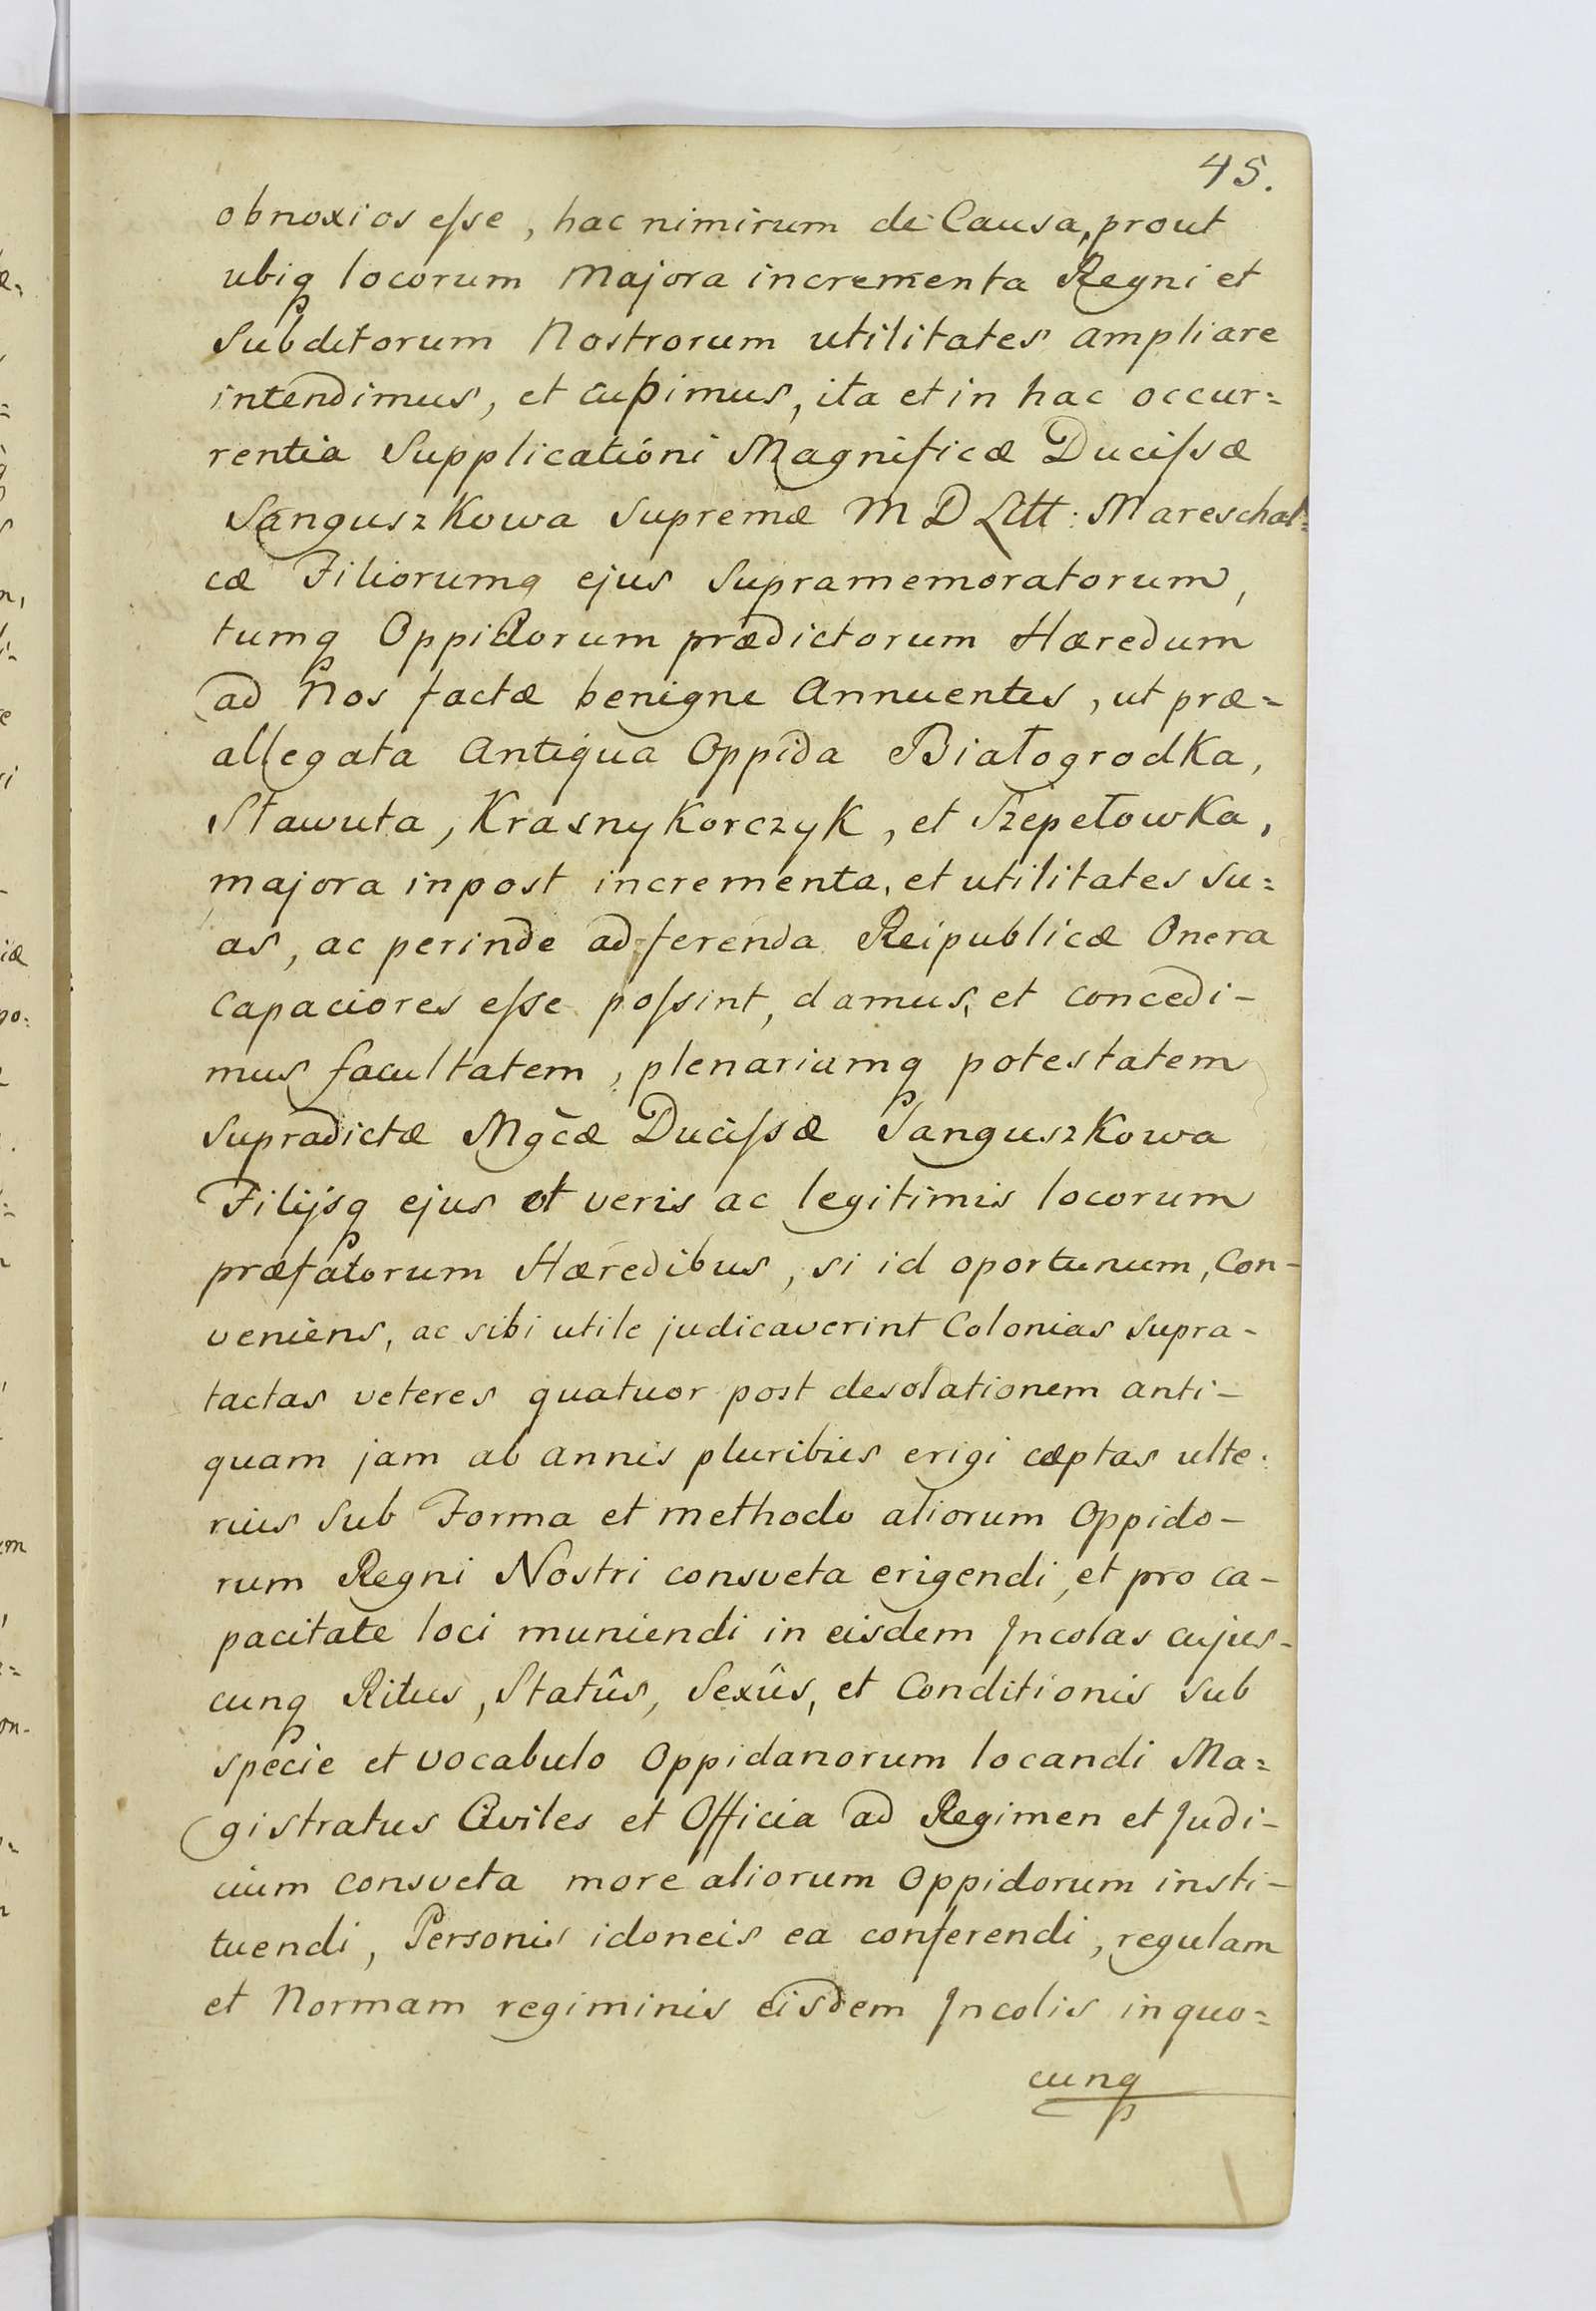 45.
obnoxios eſse, hac nimirum de Causa, prout
ubiq locorum Majora incrementa Regni et
Subditorum Nostrorum utilitates ampliare
intendimus, et cupimus, ita et in hac occur=
rentia Supplicationi Magnificæ Duciſsæ
Sanguszkowa Supremæ M D Litt: Mareschal=
cæ Filiorumq ejus Supramemoratorum,
tumq Oppidorum prædictorum Hæredum
ad Nos factæ benigne Annuentes, ut præ=
allegata Antiqua Oppida Białogrodka,
Sławuta, Krasny Korczyk, et Szepełowka,
majora inpost incrementa, et utilitates su=
as, ac perinde ad ferenda Reipublicæ Onera
Capaciores eſse poſsint, damus, et concedi-
mus facultatem, plenariamq potestatem
supradictæ Mgcæ Duciſsæ Sanguszkowa
Filijsq ejus et veris ac legitimis locorum
præfatorum Hæredibus, si id oportunum, Con-
veniens, ac sibi utile judicaverint Colonias supra-
tactas veteres quatuor post desolationem anti-
quam jam ab annis pluribus erigi cæptas ulte.
rius Sub Forma et methodo aliorum Oppido-
rum Regni Nostri consveta erigendi, et pro ca-
pacitate loci muniendi in eisdem Incolas cujus-
cunq Ritus, Statûs, Sexûs, et Conditionis sub
specie et vocabulo Oppidanorum locandi Ma=
gistratus Civiles et Officia ad Regimen et Judi-
cium consveta more aliorum Oppidorum insti-
tuendi, Personis idoneis ea conferendi, regulam
et Normam regiminis eisdem Incolis in quo=
cunq